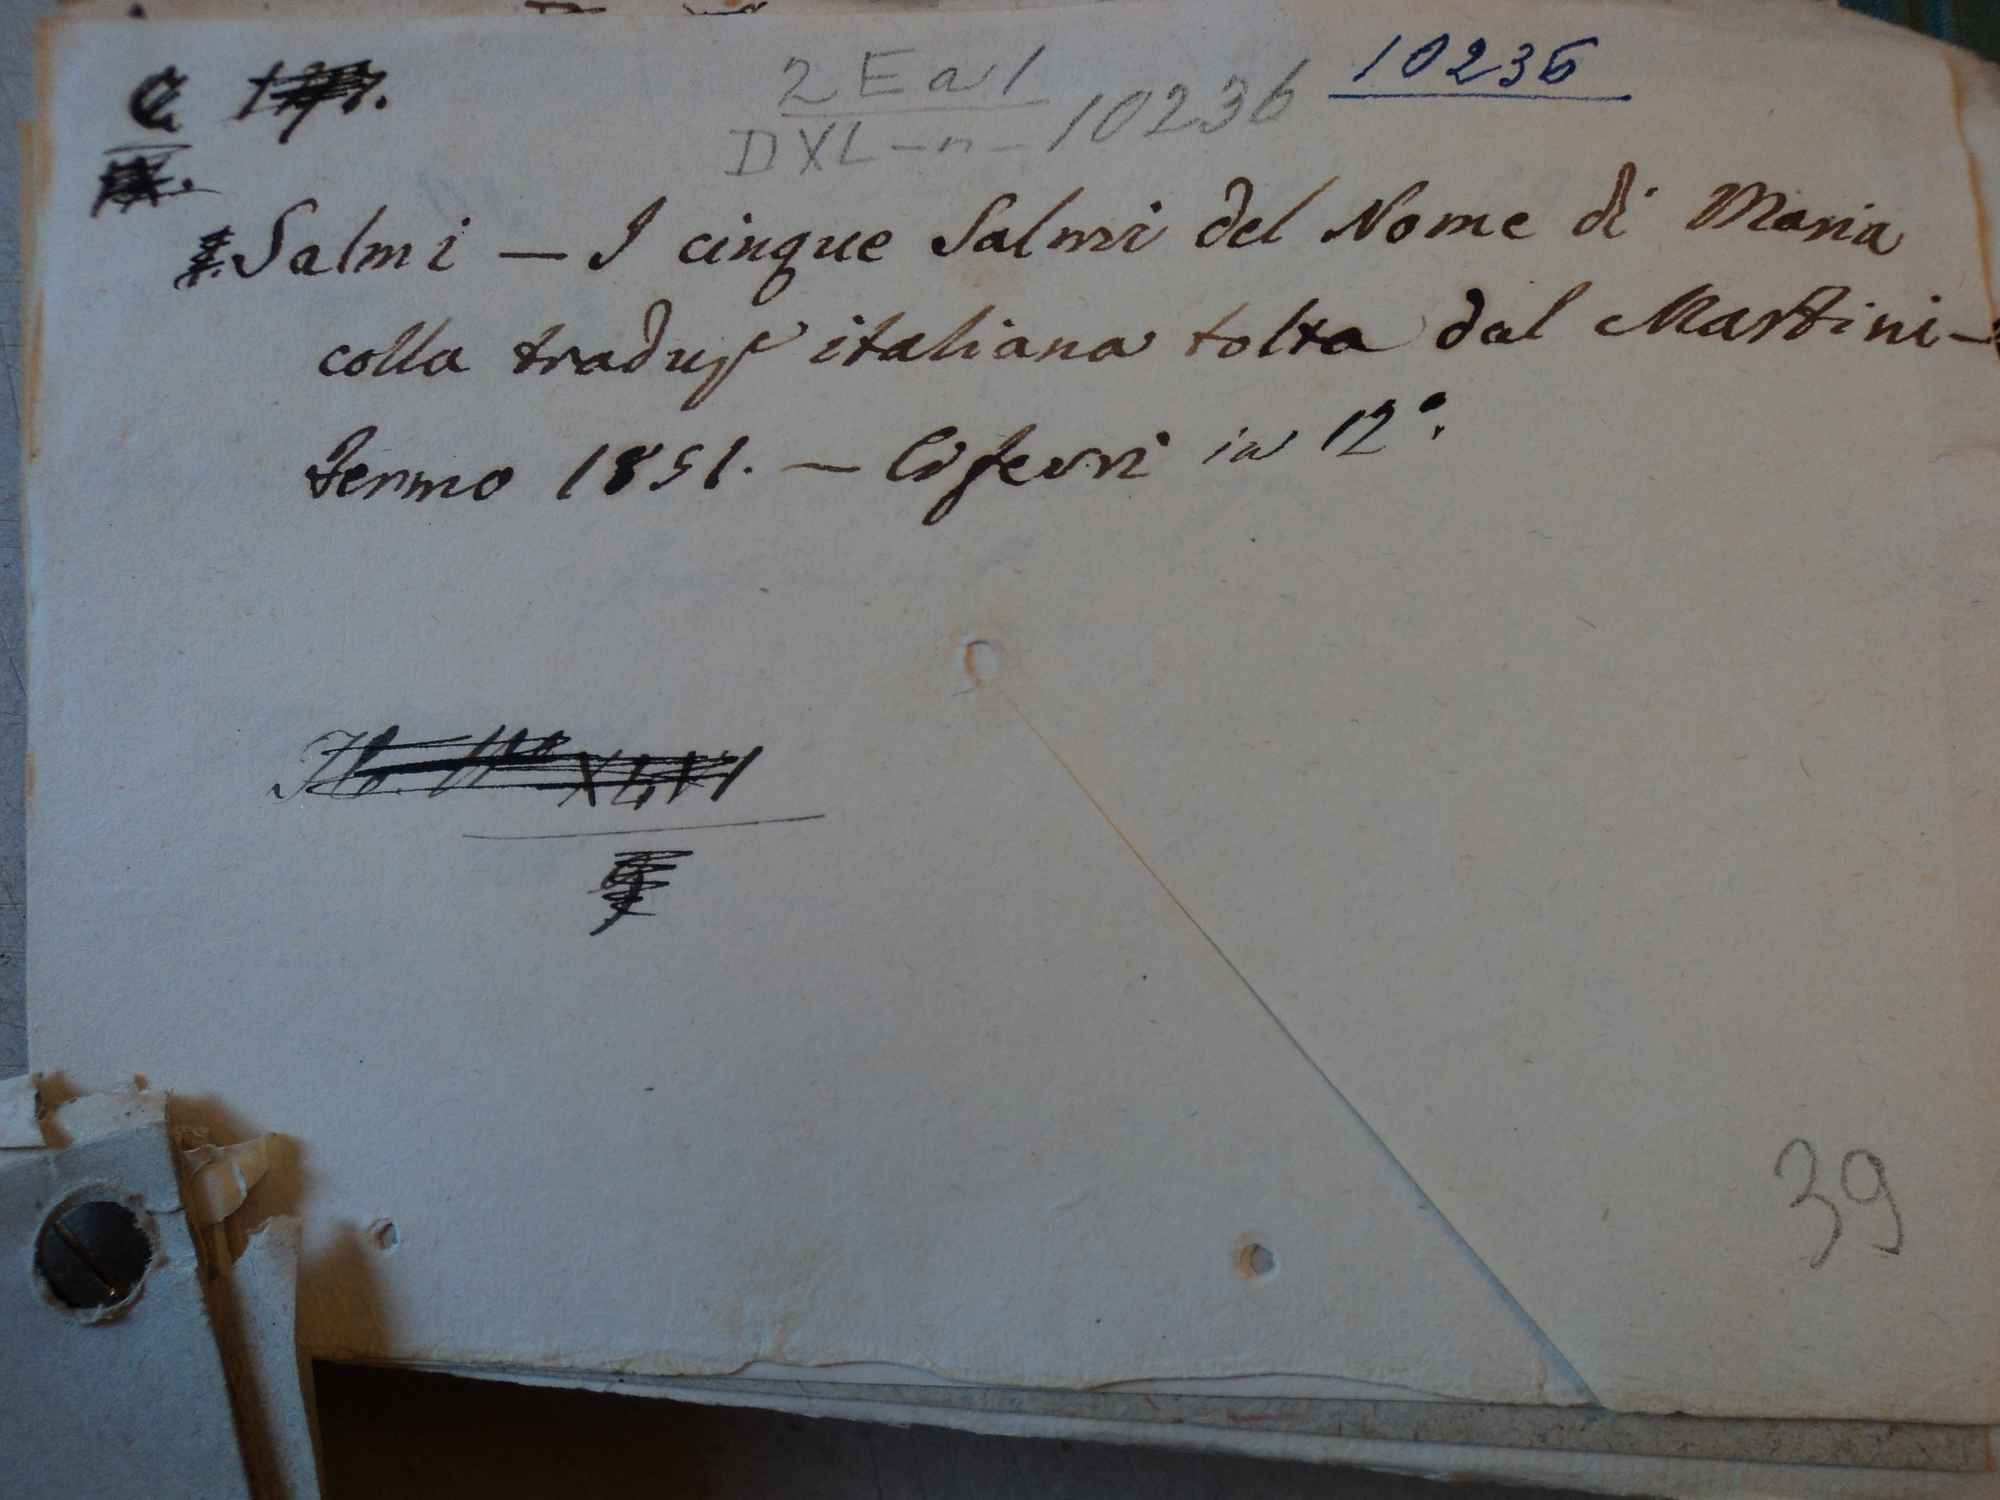 2 E a 1
DXL - n - 10236
10236
Salmi — I cinque Salmi del Nome di Maria
colla traduz^e italiana tolta dal Martini —
Fermo 1851. — Ciferri in 12°.
39